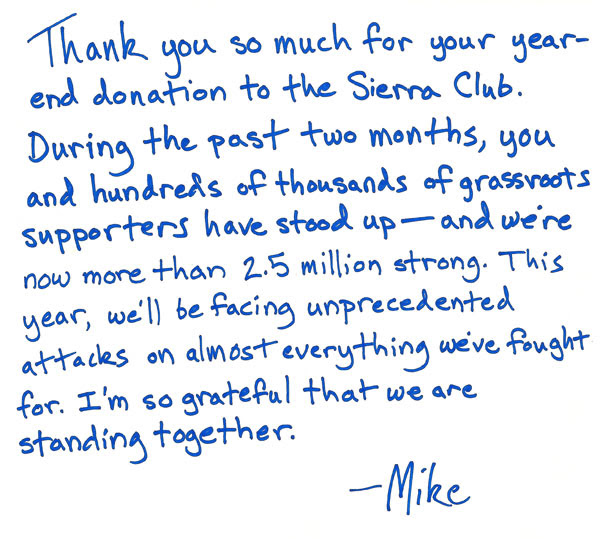 Thank you so much for your year-
end donation to the Sierra Club.
During the past two months, you
and hundreds of thousands of grassroots
supporters have stood up—and we're
now more than 2.5 million strong. This
year, we'll be facing unprecedented
attacks on almost everything we've fought
for. I'm so grateful that we are
standing together.
—Mike